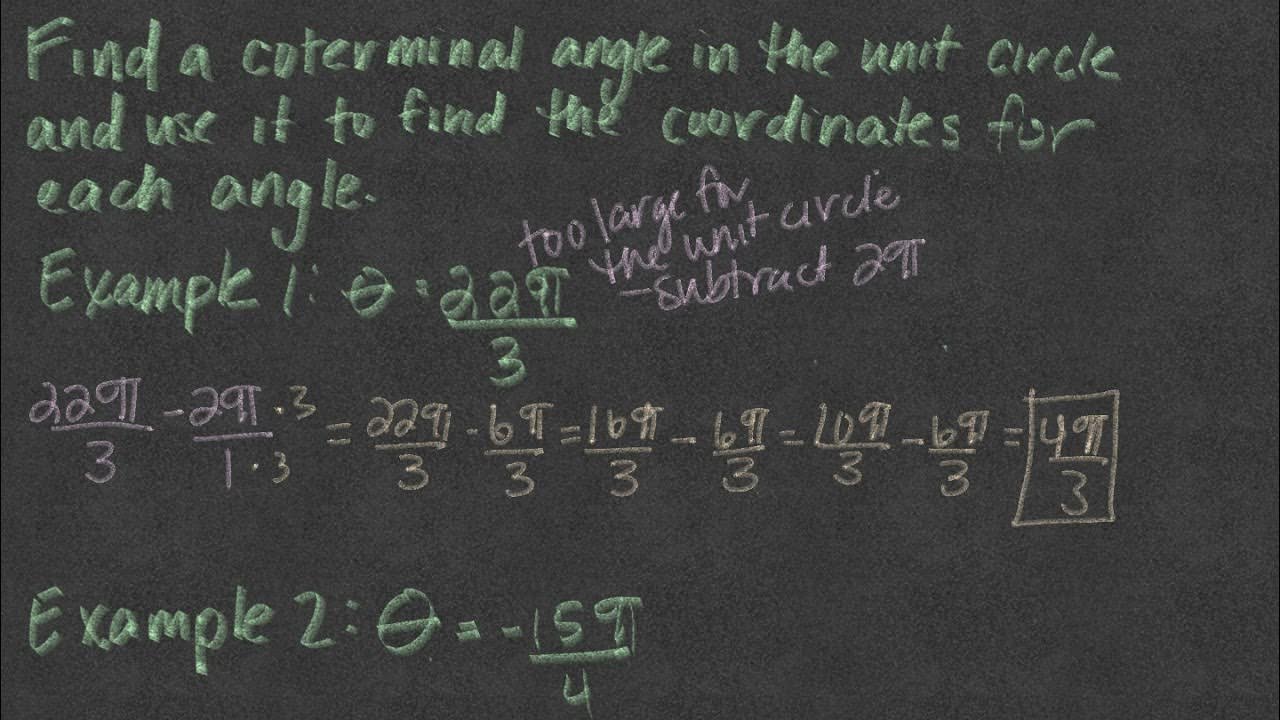 Find a coterminal angle in the unit circle
and use it to find the coordinates for
each angle.
too large for
the unit circle
- subtract 2π
Example 1: θ = 22π/3
22π/3 - 2π/1 ·3/·3 = 22π/3 - 6π/3 = 16π/3 - 6π/3 = 10π/3 - 6π/3 = 4π/3
Example 2: θ = -15π/4